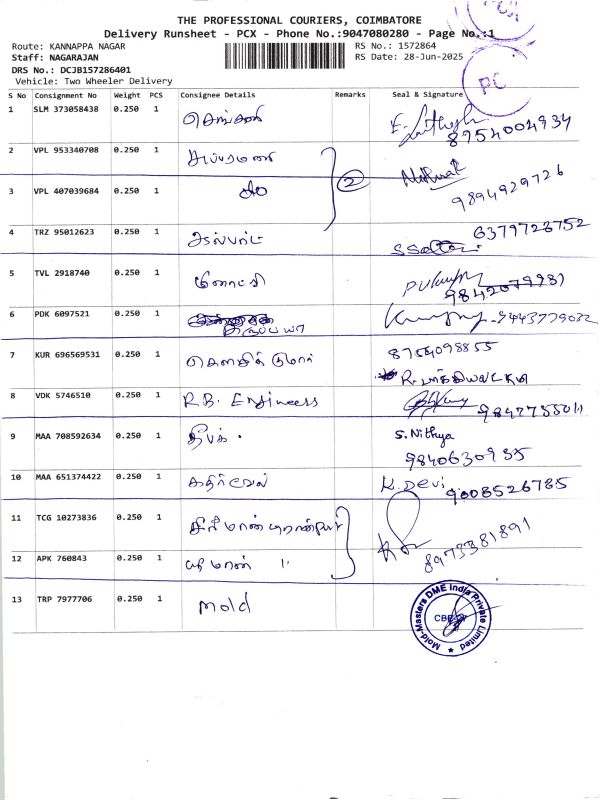 THE PROFESSIONAL COURIERS, COIMBATORE
Delivery Runsheet - PCX - Phone No.:9047080280 - Page No.:1
Route: KANNAPPA NAGAR RS No.: 1572864
Staff: NAGARAJAN RS Date: 28-Jun-2025
DRS No.: DCJB157286401
Vehicle: Two Wheeler Delivery
PC
S No Consignment No Weight PCS Consignee Details Remarks Seal & Signature
1 SLM 373058438 0.250 1
8754004934
2 VPL 953340708 0.250 1
2
3 VPL 407039684 0.250 1 do
9894929726
4 TRZ 95012623 0.250 1 6379723752
5 TVL 2918740 0.250 1 மீனாட்சி
9842079931
6 PDK 6097521 0.250 1 9443779032
7 KUR 696569531 0.250 1 கௌசிக் குமார் 8754098855
8 VDK 5746510 0.250 1 R.B. Engineers 9847755011
9 MAA 708592634 0.250 1 தீபக். S. Nithya
9840630935
10 MAA 651374422 0.250 1 கதிர்வேல் K. Devi 9008526785
11 TCG 10273836 0.250 1
8973381891
12 APK 760843 0.250 1 "
13 TRP 7977706 0.250 1 Mold
Mold-Masters DME India Private Limited
CBE